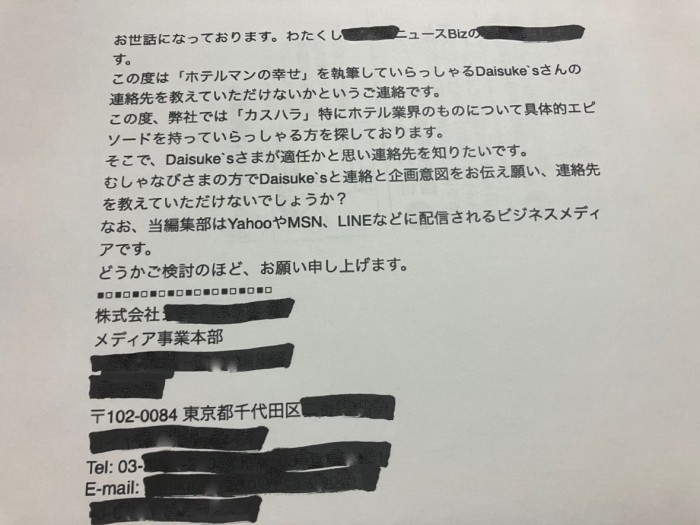 お世話になっております。わたくし ニュースBizの
す。
この度は「ホテルマンの幸せ」を執筆していらっしゃるDaisuke`sさんの
連絡先を教えていただけないかというご連絡です。
この度、弊社では「カスハラ」特にホテル業界のものについて具体的エピ
ソードを持っていらっしゃる方を探しております。
そこで、Daisuke`sさまが適任かと思い連絡先を知りたいです。
むしゃなびさまの方でDaisuke`sと連絡と企画意図をお伝え願い、連絡先
を教えていただけないでしょうか？
なお、当編集部はYahooやMSN、LINEなどに配信されるビジネスメディ
アです。
どうかご検討のほど、お願い申し上げます。
■□■□■□■□■□■□■□■□■□■□
株式会社
メディア事業本部
〒102-0084 東京都千代田区
Tel: 03-
E-mail: